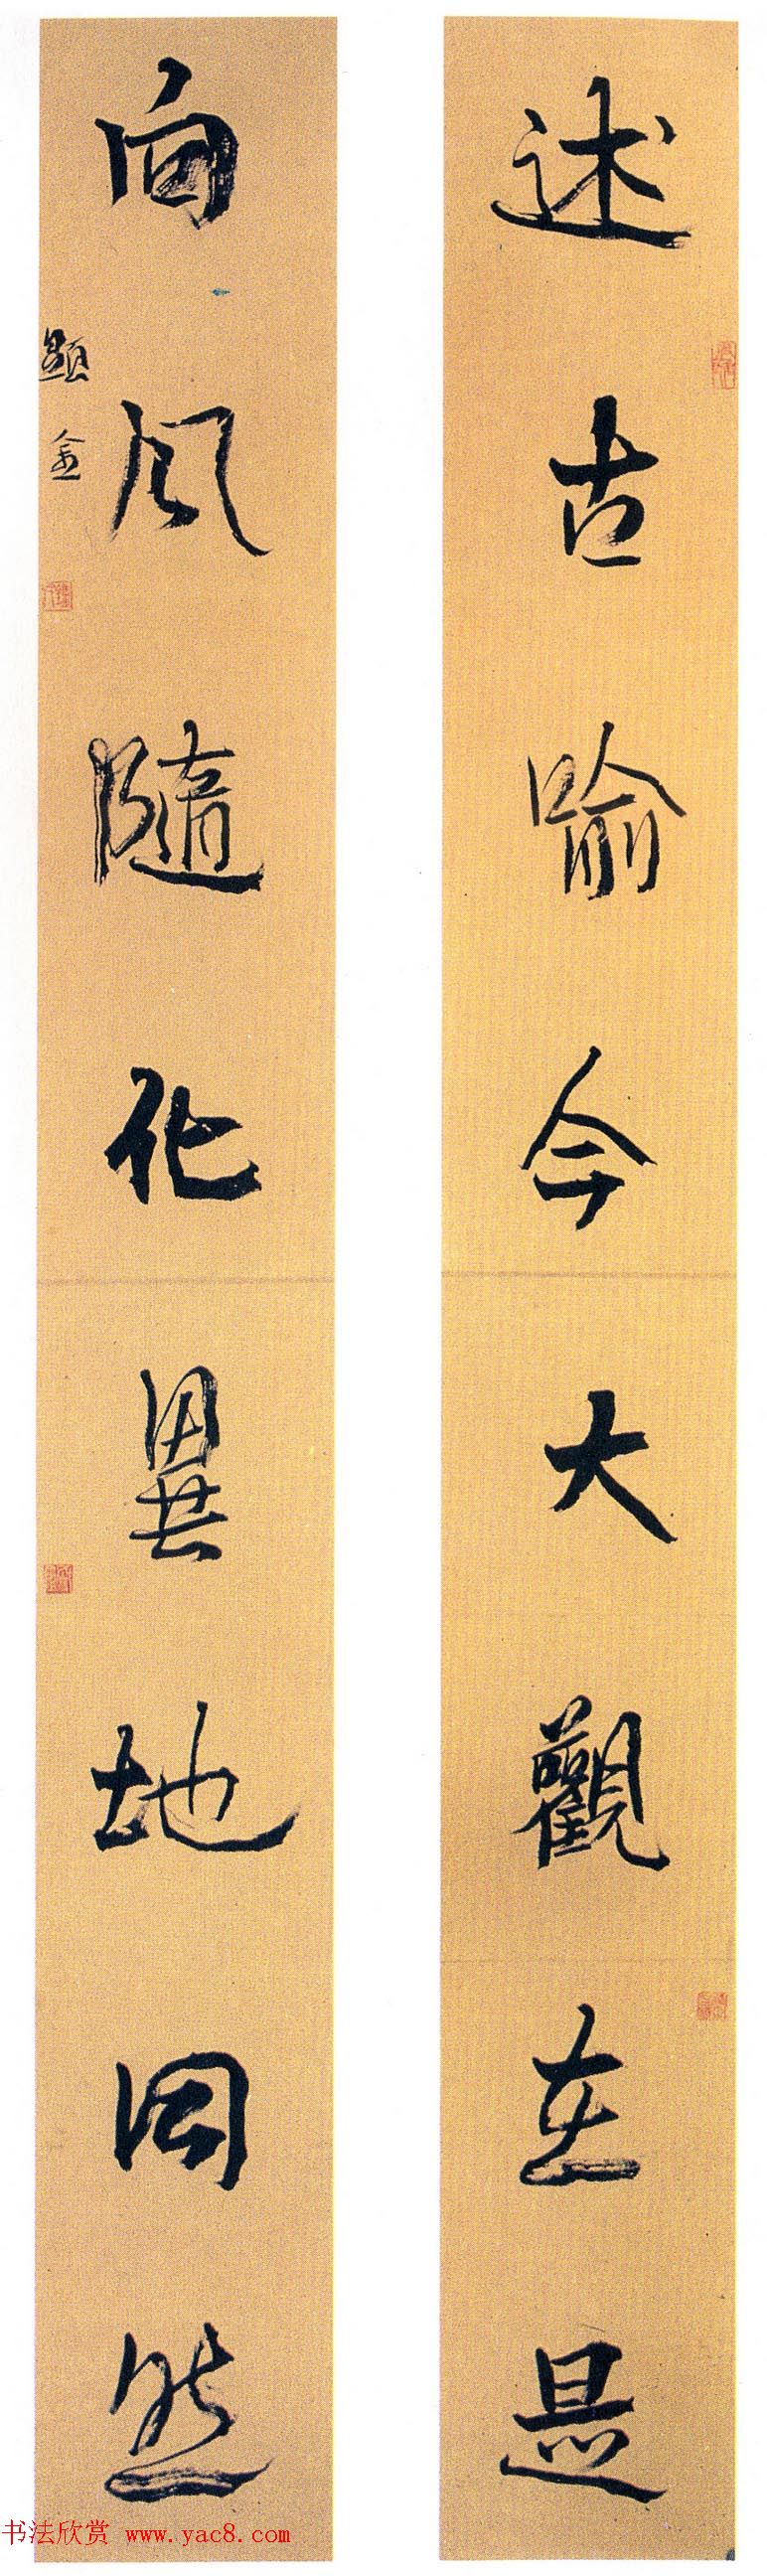 述古喻今大觀在是
向風隨化異地同然
書法欣赏 www.yac8.com